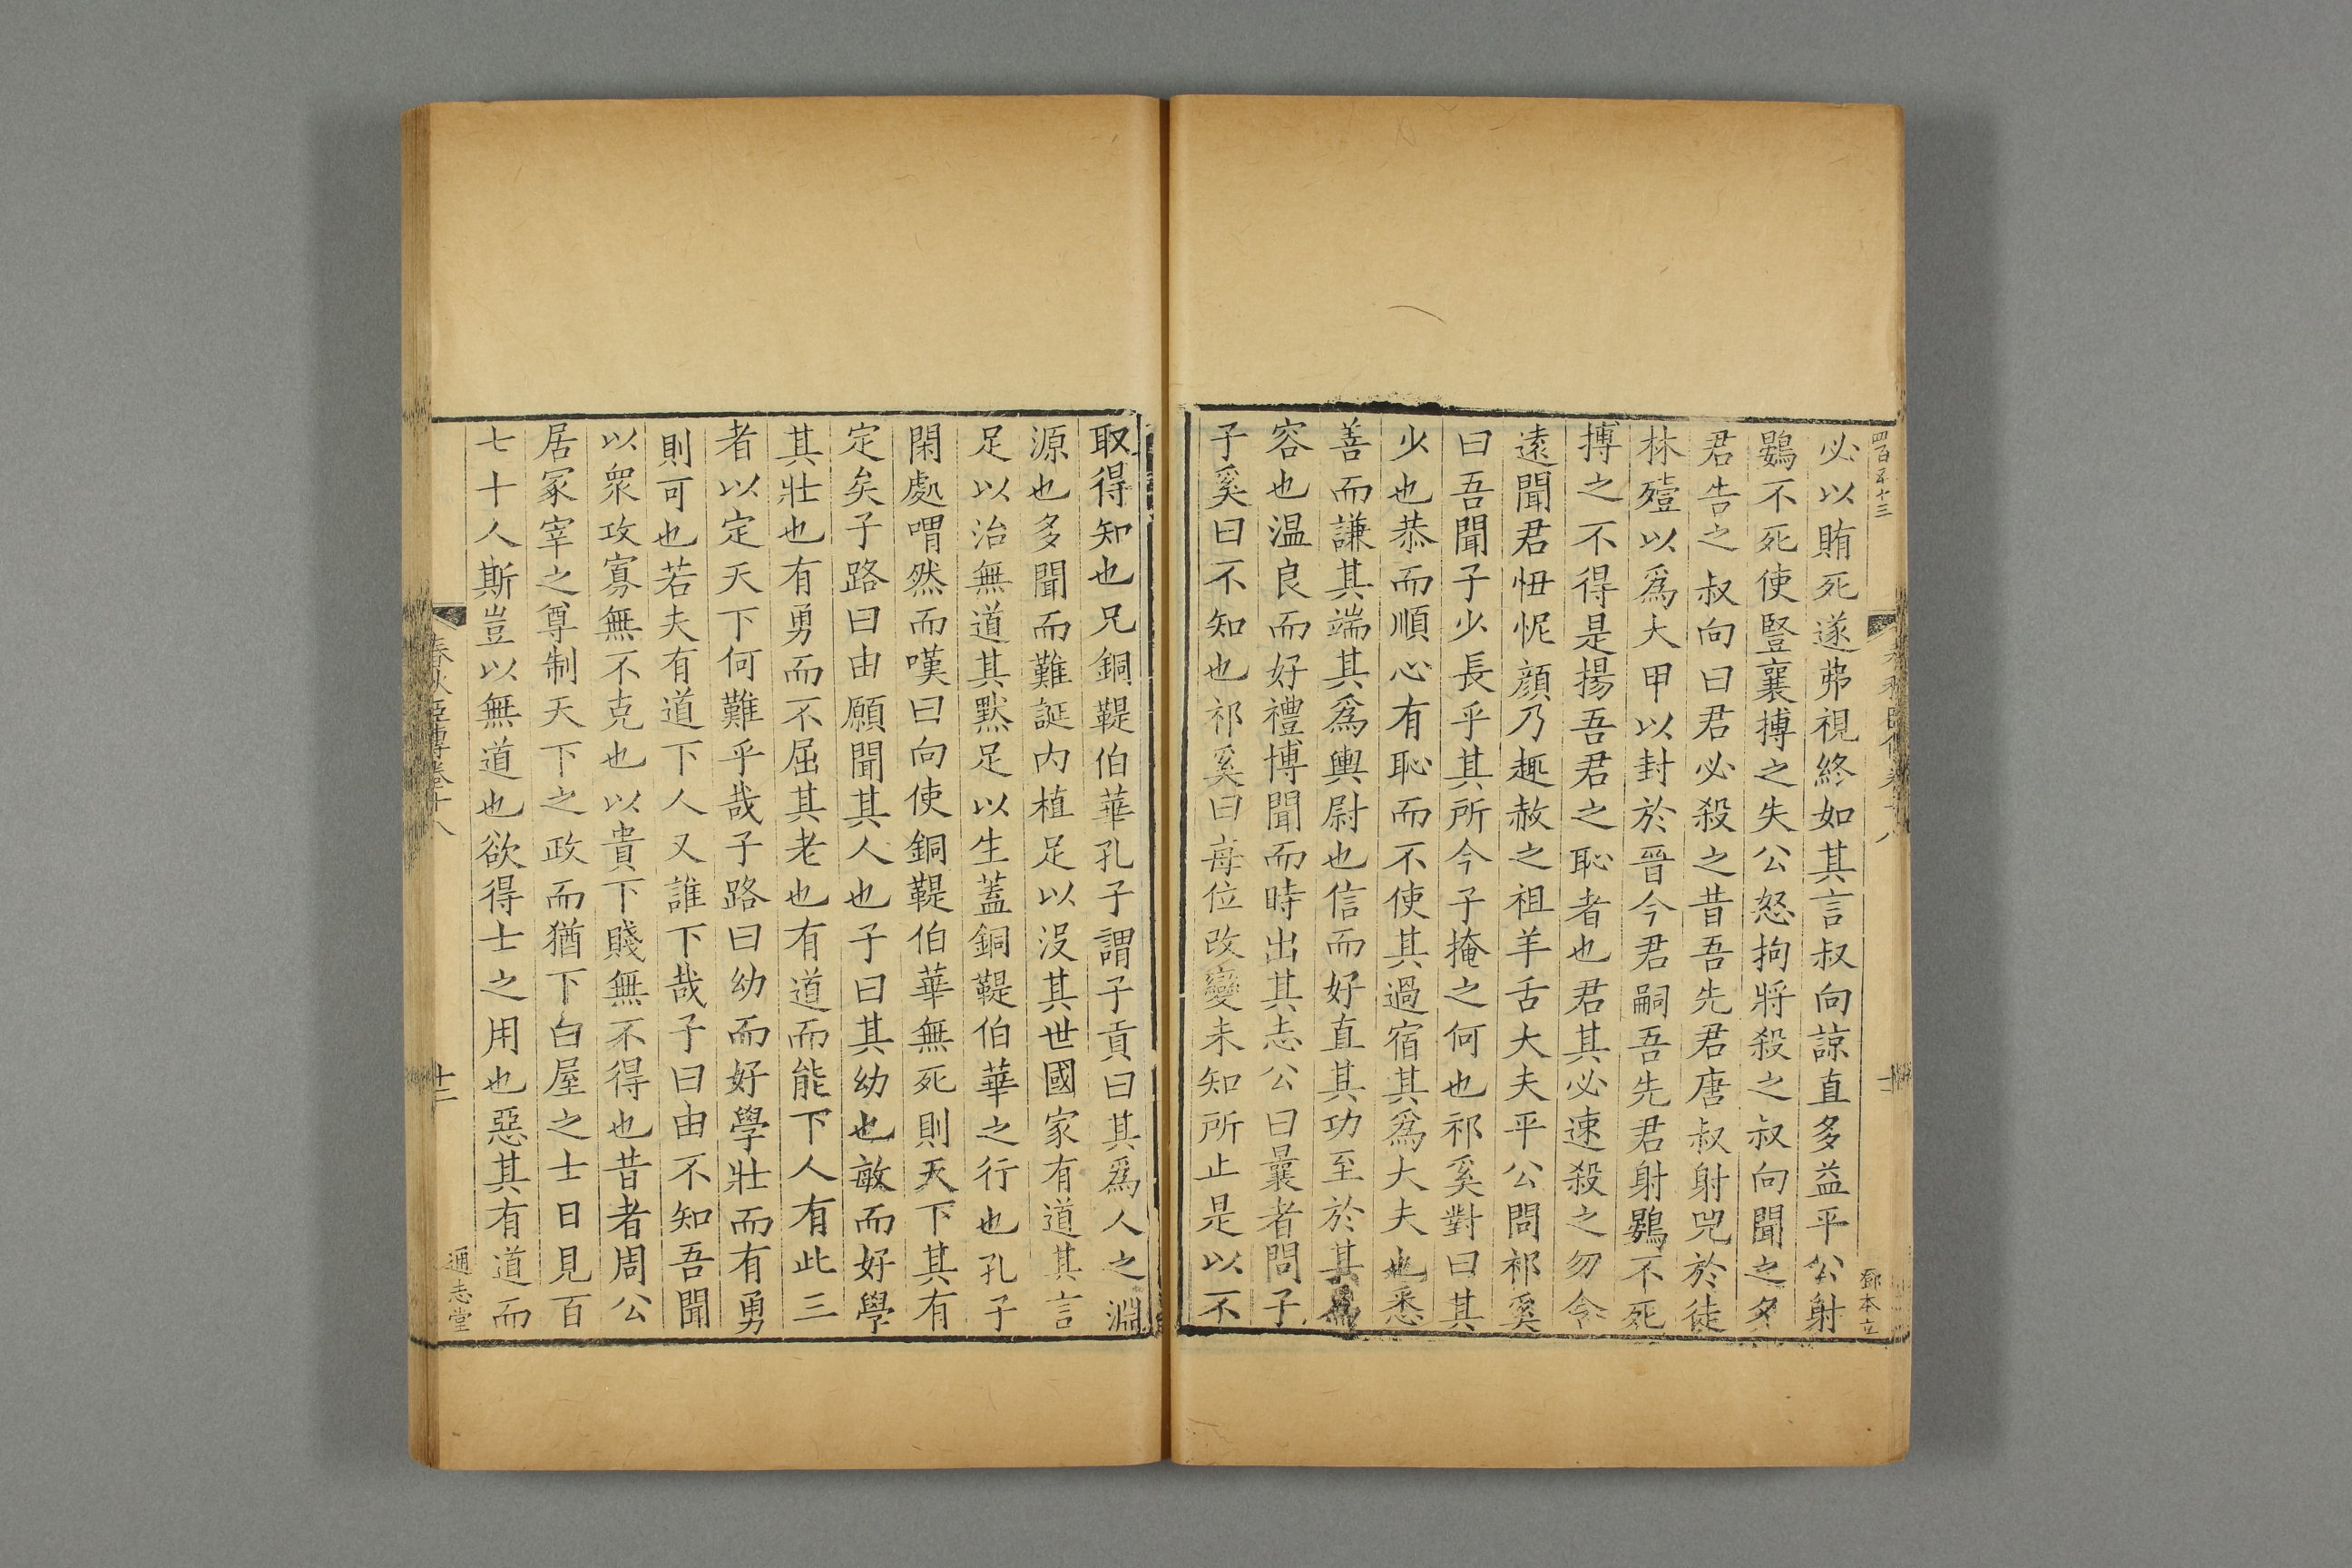 四百五十三
必以賄死遂弗視終如其言叔向諒直多益平公射
鷃不死使豎襄搏之失公怒拘將殺之叔向聞之夕
君告之叔向曰君必殺之昔吾先君唐叔射兕於徒
林殪以爲大甲以封於晉今君嗣吾先君射鷃不死
搏之不得是揚吾君之恥者也君其必速殺之勿令
遠聞君忸怩顔乃趣赦之祖羊舌大夫平公問祁奚
曰吾聞子少長乎其所今子掩之何也祁奚對曰其
少也恭而順心有恥而不使其過宿其爲大夫也悉
善而謙其端其爲輿尉也信而好直其功至於其爲
容也温良而好禮博聞而時出其志公曰曩者問子
子奚曰不知也祁奚曰每位改變未知所止是以不
鄧本立
取得知也兄銅鞮伯華孔子謂子貢曰其爲人之淵
源也多聞而難誕内植足以沒其世國家有道其言
足以治無道其默足以生蓋銅鞮伯華之行也孔子
閑處喟然而嘆曰向使銅鞮伯華無死則天下其有
定矣子路曰由願聞其人也子曰其幼也敏而好學
其壯也有勇而不屈其老也有道而能下人有此三
者以定天下何難乎哉子路曰幼而好學壯而有勇
則可也若夫有道下人又誰下哉子曰由不知吾聞
以衆攻寡無不克也以貴下賤無不得也昔者周公
居冢宰之尊制天下之政而猶下白屋之士日見百
七十人斯豈以無道也欲得士之用也惡其有道而
春秋臣傳卷十八
十二
通志堂